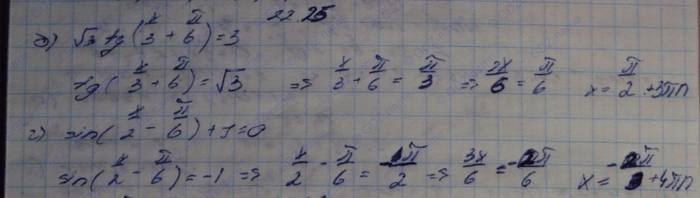 22.25
в) √3 tg(x/3 + π/6) = 3
tg(x/3 + π/6) = √3 => x/3 + π/6 = π/3 => 2x/6 = π/6 x = π/2 + 3πn
г) sin(x/2 - π/6) + 1 = 0
sin(x/2 - π/6) = -1 => x/2 - π/6 = -π/2 => 3x/6 = -2π/6 x = -2π/3 + 4πn